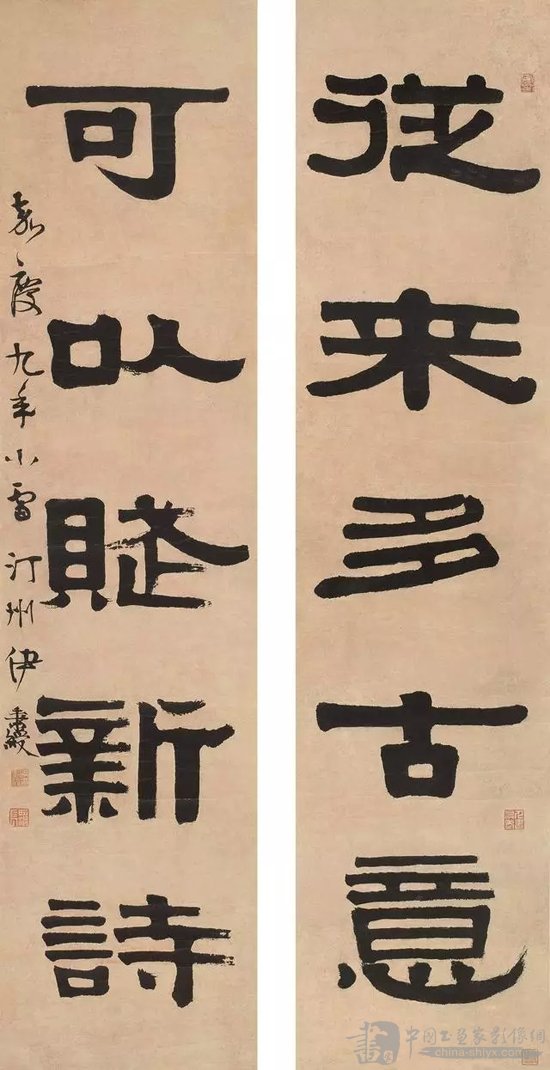 從来多古意
可以賦新詩
嘉慶九年小雪汀州伊秉綬
中国书画家影像網
china-shiyx.com